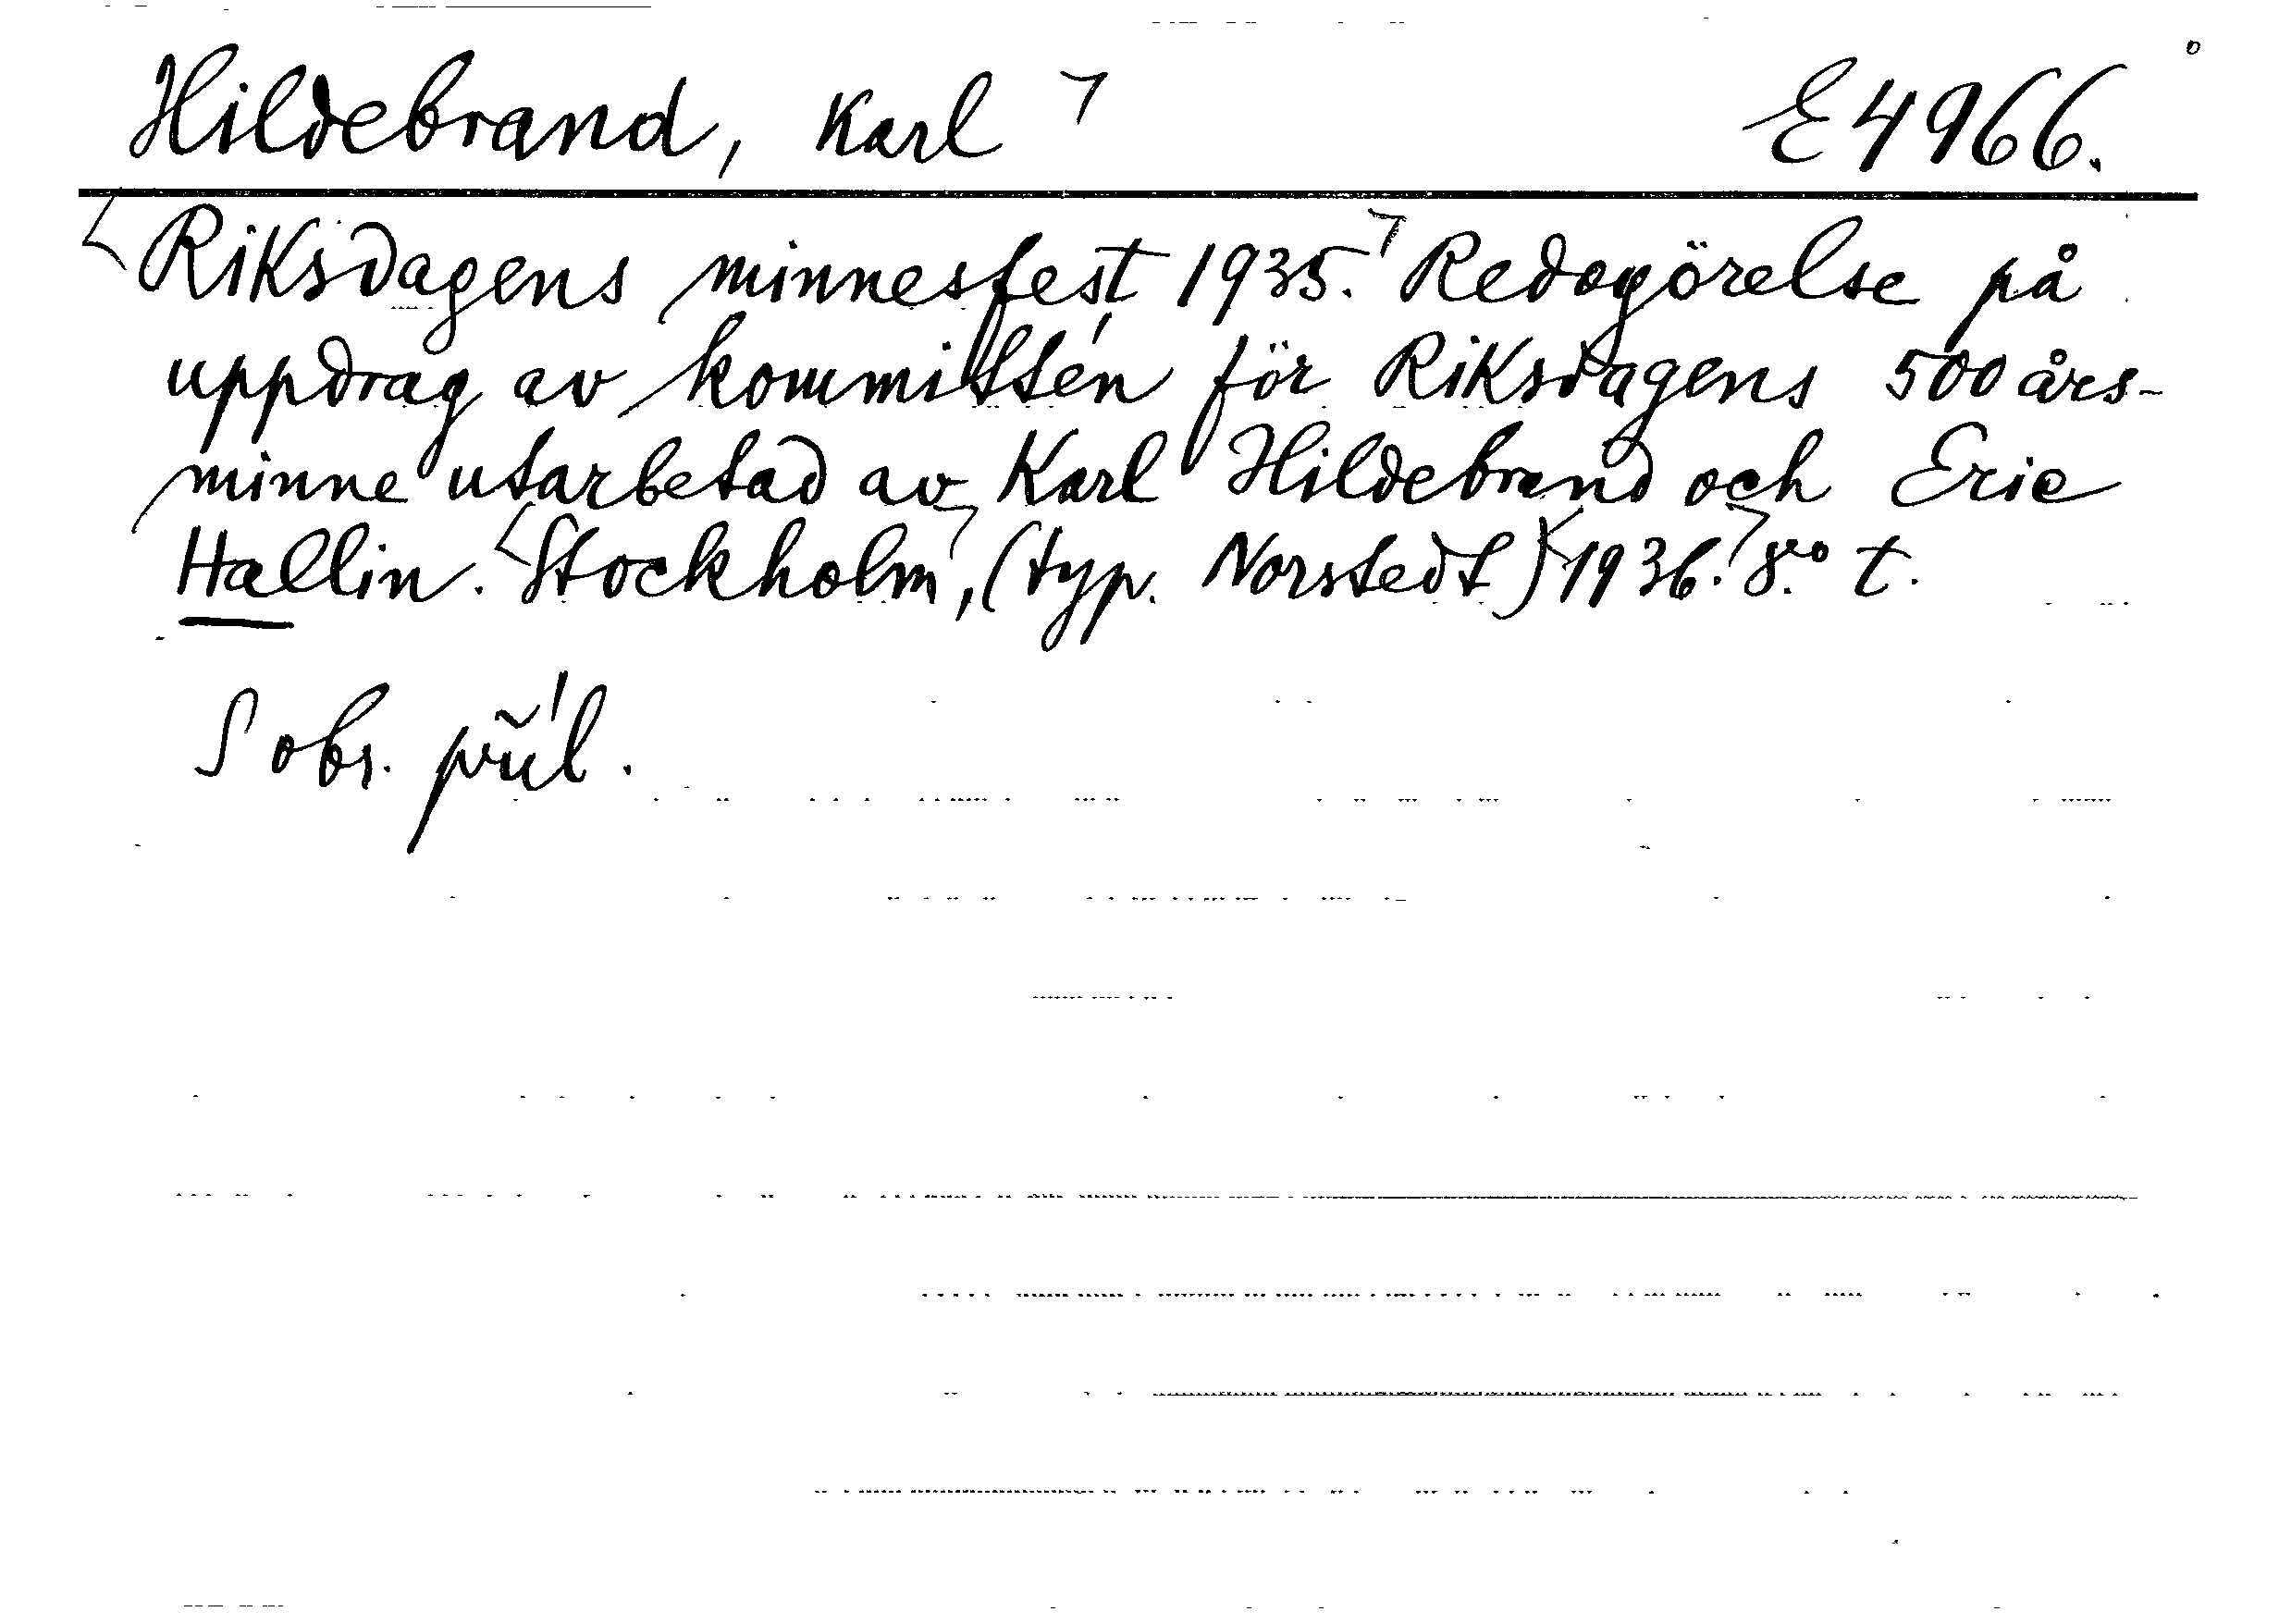 Hildebrand, Karl E 4966.
Riksdagens minnesfest 1935. Redogörelse på
uppdrag av kommittén för Riksdagens 500 års-
minne utarbetad av Karl Hildebrand och Eric
Hallin. Stockholm, (typ. Norstedt) 1936. 8° t.
S obr. příl.